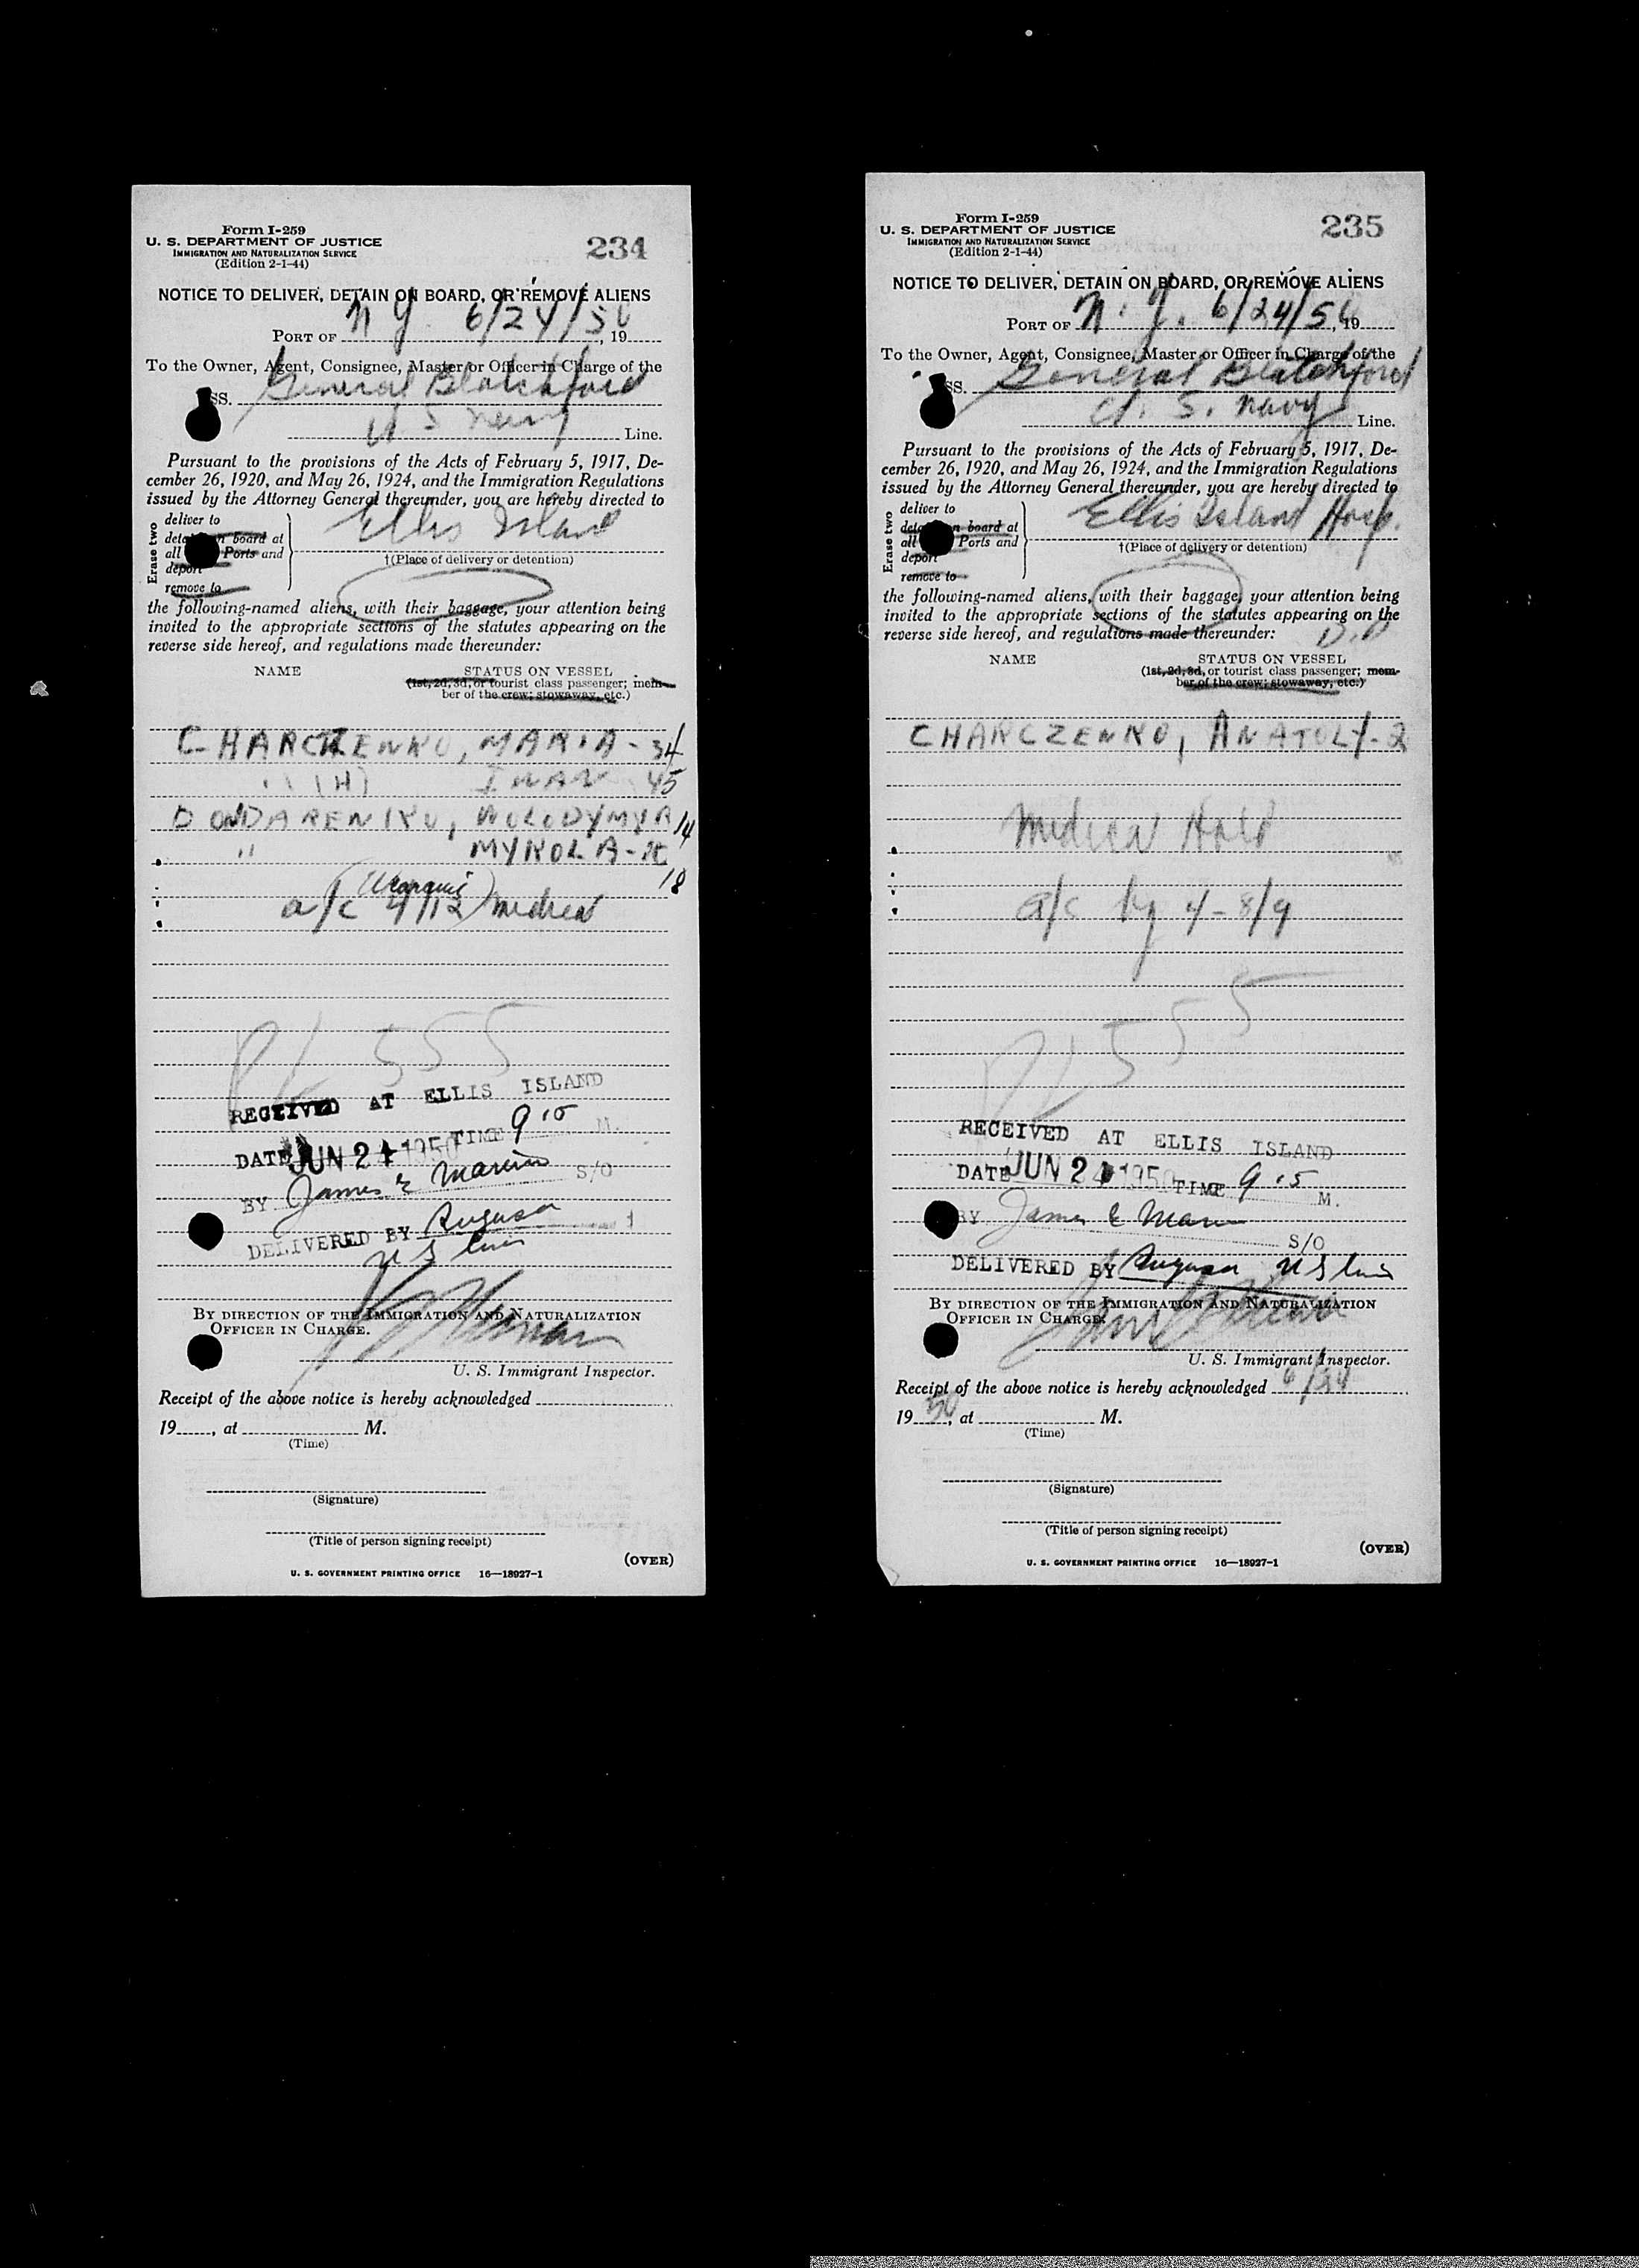 Form I-259
U. S. DEPARTMENT OF JUSTICE
IMMIGRATION AND NATURALIZATION SERVICE
(Edition 2-1-44)
234
NOTICE TO DELIVER, DETAIN ON BOARD, OR REMOVE ALIENS
PORT OF N Y. 6/24/50, 19
To the Owner, Agent, Consignee, Master or Officer in Charge of the
SS. General Blatchford
U. S Navy Line.
Pursuant to the provisions of the Acts of February 5, 1917, De-
cember 26, 1920, and May 26, 1924, and the Immigration Regulations
issued by the Attorney General thereunder, you are hereby directed to
Erase two
deliver to
on board at
all Ports and
deport
remove to
Ellis Island
†(Place of delivery or detention)
the following-named aliens, with their baggage, your attention being
invited to the appropriate sections of the statutes appearing on the
reverse side hereof, and regulations made thereunder:
NAME STATUS ON VESSEL
(1st, 2d, 3d, or tourist class passenger; mem-
ber of the crew; stowaway, etc.)
CHARCZENKO, MARIA - 34
" (H) IWAN 45
BONDARENKO, WOLODYMYR 14
" MYKOLA -
18
a/c 4/12 Medical
555
RECEIVED AT ELLIS ISLAND
DATE JUN 24 1950 TIME 9 15 M.
BY James E Marino S/O
DELIVERED BY
U S Lines
BY DIRECTION OF THE IMMIGRATION AND NATURALIZATION
OFFICER IN CHARGE.
U. S. Immigrant Inspector.
Receipt of the above notice is hereby acknowledged
19, at M.
(Time)
(Signature)
(Title of person signing receipt)
(OVER)
U. S. GOVERNMENT PRINTING OFFICE 16—18927-1
Form I-259
U. S. DEPARTMENT OF JUSTICE
IMMIGRATION AND NATURALIZATION SERVICE
(Edition 2-1-44)
235
NOTICE TO DELIVER, DETAIN ON BOARD, OR REMOVE ALIENS
PORT OF N. Y. 6/24/50, 19
To the Owner, Agent, Consignee, Master or Officer in Charge of the
SS. General Blatchford
U. S. Navy Line.
Pursuant to the provisions of the Acts of February 5, 1917, De-
cember 26, 1920, and May 26, 1924, and the Immigration Regulations
issued by the Attorney General thereunder, you are hereby directed to
Erase two
deliver to
on board at
all Ports and
deport
remove to
Ellis Island Hosp.
†(Place of delivery or detention)
the following-named aliens, with their baggage, your attention being
invited to the appropriate sections of the statutes appearing on the
reverse side hereof, and regulations made thereunder: D.P
NAME STATUS ON VESSEL
(1st, 2d, 3d, or tourist class passenger; mem-
ber of the crew; stowaway, etc.)
CHARCZENKO, ANATOLY - 2
Medical Hold
a/c by 4-8/9
555
RECEIVED AT ELLIS ISLAND
DATE JUN 24 1950 TIME 9 15 M.
BY James E Marino S/O
DELIVERED BY U S Lines
BY DIRECTION OF THE IMMIGRATION AND NATURALIZATION
OFFICER IN CHARGE.
U. S. Immigrant Inspector.
Receipt of the above notice is hereby acknowledged 6/24
19 50, at M.
(Time)
(Signature)
(Title of person signing receipt)
(OVER)
U. S. GOVERNMENT PRINTING OFFICE 16—18927-1